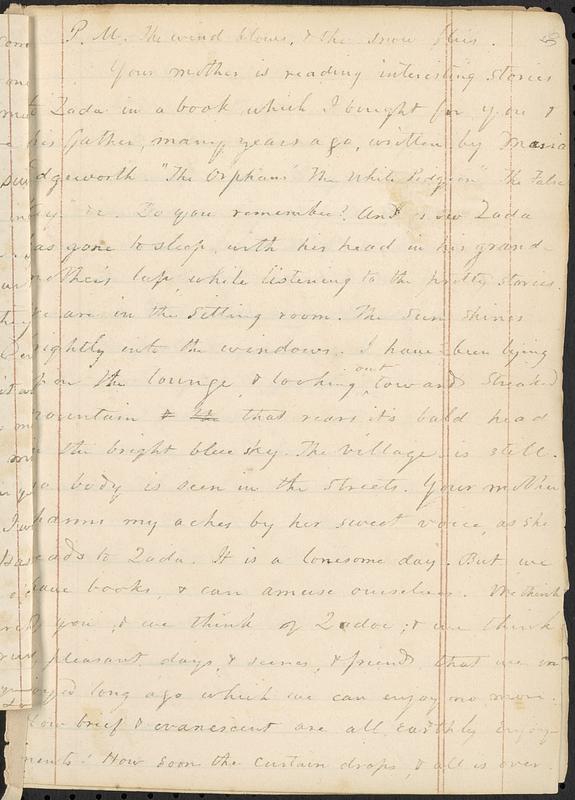 P. M. The wind blows, & the snow flies.
Your mother is reading interesting stories
Zada in a book which I bought for you &
his father, many years ago, written by Maria
dgeworth. "The Orphans" The White Pidgeon" The False
Key" &c. Do you remember? And now Zada
as gone to sleep with his head in his grand-
mother's lap while listening to the pretty stories.
We are in the sitting room. The sun shines
rightly into the windows. I have been lying
on the lounge, & looking out toward Streaked
mountain that rears it's bald head
in the bright blue sky. The village is still.
No body is seen in the streets. Your mother
harms my aches by her sweet voice, as she
eads to Zada. It is a lonesome day. But we
have books, & can amuse ourselves. We think
of you, & we think of Zadoc; & we think
pleasant days, & scenes, & friends that we en-
joyed long ago which we can enjoy no more.
How brief & evanescent are all earthly enjoy-
ments! How soon the curtain drops, & all is over.